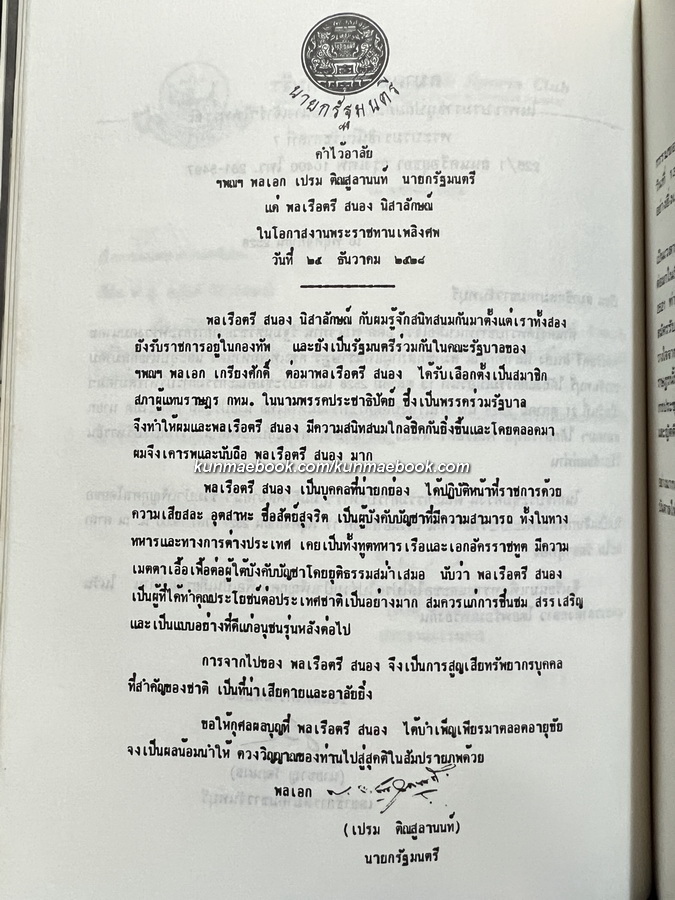 นายกรัฐมนตรี
คำไว้อาลัย
ฯพณฯ พลเอก เปรม ติณสูลานนท์ นายกรัฐมนตรี
แด่ พลเรือตรี สนอง นิสาลักษณ์
ในโอกาสงานพระราชทานเพลิงศพ
วันที่ ๒๕ ธันวาคม ๒๕๒๘
พลเรือตรี สนอง นิสาลักษณ์ กับผมรู้จักสนิทสนมกันมาตั้งแต่เราทั้งสอง
ยังรับราชการอยู่ในกองทัพ และยังเป็นรัฐมนตรีร่วมกันในคณะรัฐบาลของ
ฯพณฯ พลเอก เกรียงศักดิ์ ต่อมาพลเรือตรี สนอง ได้รับเลือกตั้งเป็นสมาชิก
สภาผู้แทนราษฎร กทม. ในนามพรรคประชาธิปัตย์ ซึ่งเป็นพรรคร่วมรัฐบาล
จึงทำให้ผมและพลเรือตรี สนอง มีความสนิทสนมใกล้ชิดกันยิ่งขึ้นและโดยตลอดมา
ผมจึงเคารพและนับถือ พลเรือตรี สนอง มาก
kunmaebook.com/kunmaebook.com
พลเรือตรี สนอง เป็นบุคคลที่น่ายกย่อง ได้ปฏิบัติหน้าที่ราชการด้วย
ความเสียสละ อุตสาหะ ซื่อสัตย์สุจริต เป็นผู้บังคับบัญชาที่มีความสามารถ ทั้งในทาง
ทหารและทางการต่างประเทศ เคยเป็นทั้งทูตทหารเรือและเอกอัครราชทูต มีความ
เมตตาเอื้อเฟื้อต่อผู้ใต้บังคับบัญชาโดยยุติธรรมสม่ำเสมอ นับว่า พลเรือตรี สนอง
เป็นผู้ที่ได้ทำคุณประโยชน์ต่อประเทศชาติเป็นอย่างมาก สมควรแก่การชื่นชม สรรเสริญ
และเป็นแบบอย่างที่ดีแก่อนุชนรุ่นหลังต่อไป
การจากไปของ พลเรือตรี สนอง จึงเป็นการสูญเสียทรัพยากรบุคคล
ที่สำคัญของชาติ เป็นที่น่าเสียดายและอาลัยยิ่ง
ขอให้กุศลผลบุญที่ พลเรือตรี สนอง ได้บำเพ็ญเพียรมาตลอดอายุขัย
จงเป็นผลน้อมนำให้ ดวงวิญญาณของท่านไปสู่สุคติในสัมปรายภพด้วย
พลเอก
(เปรม ติณสูลานนท์)
นายกรัฐมนตรี